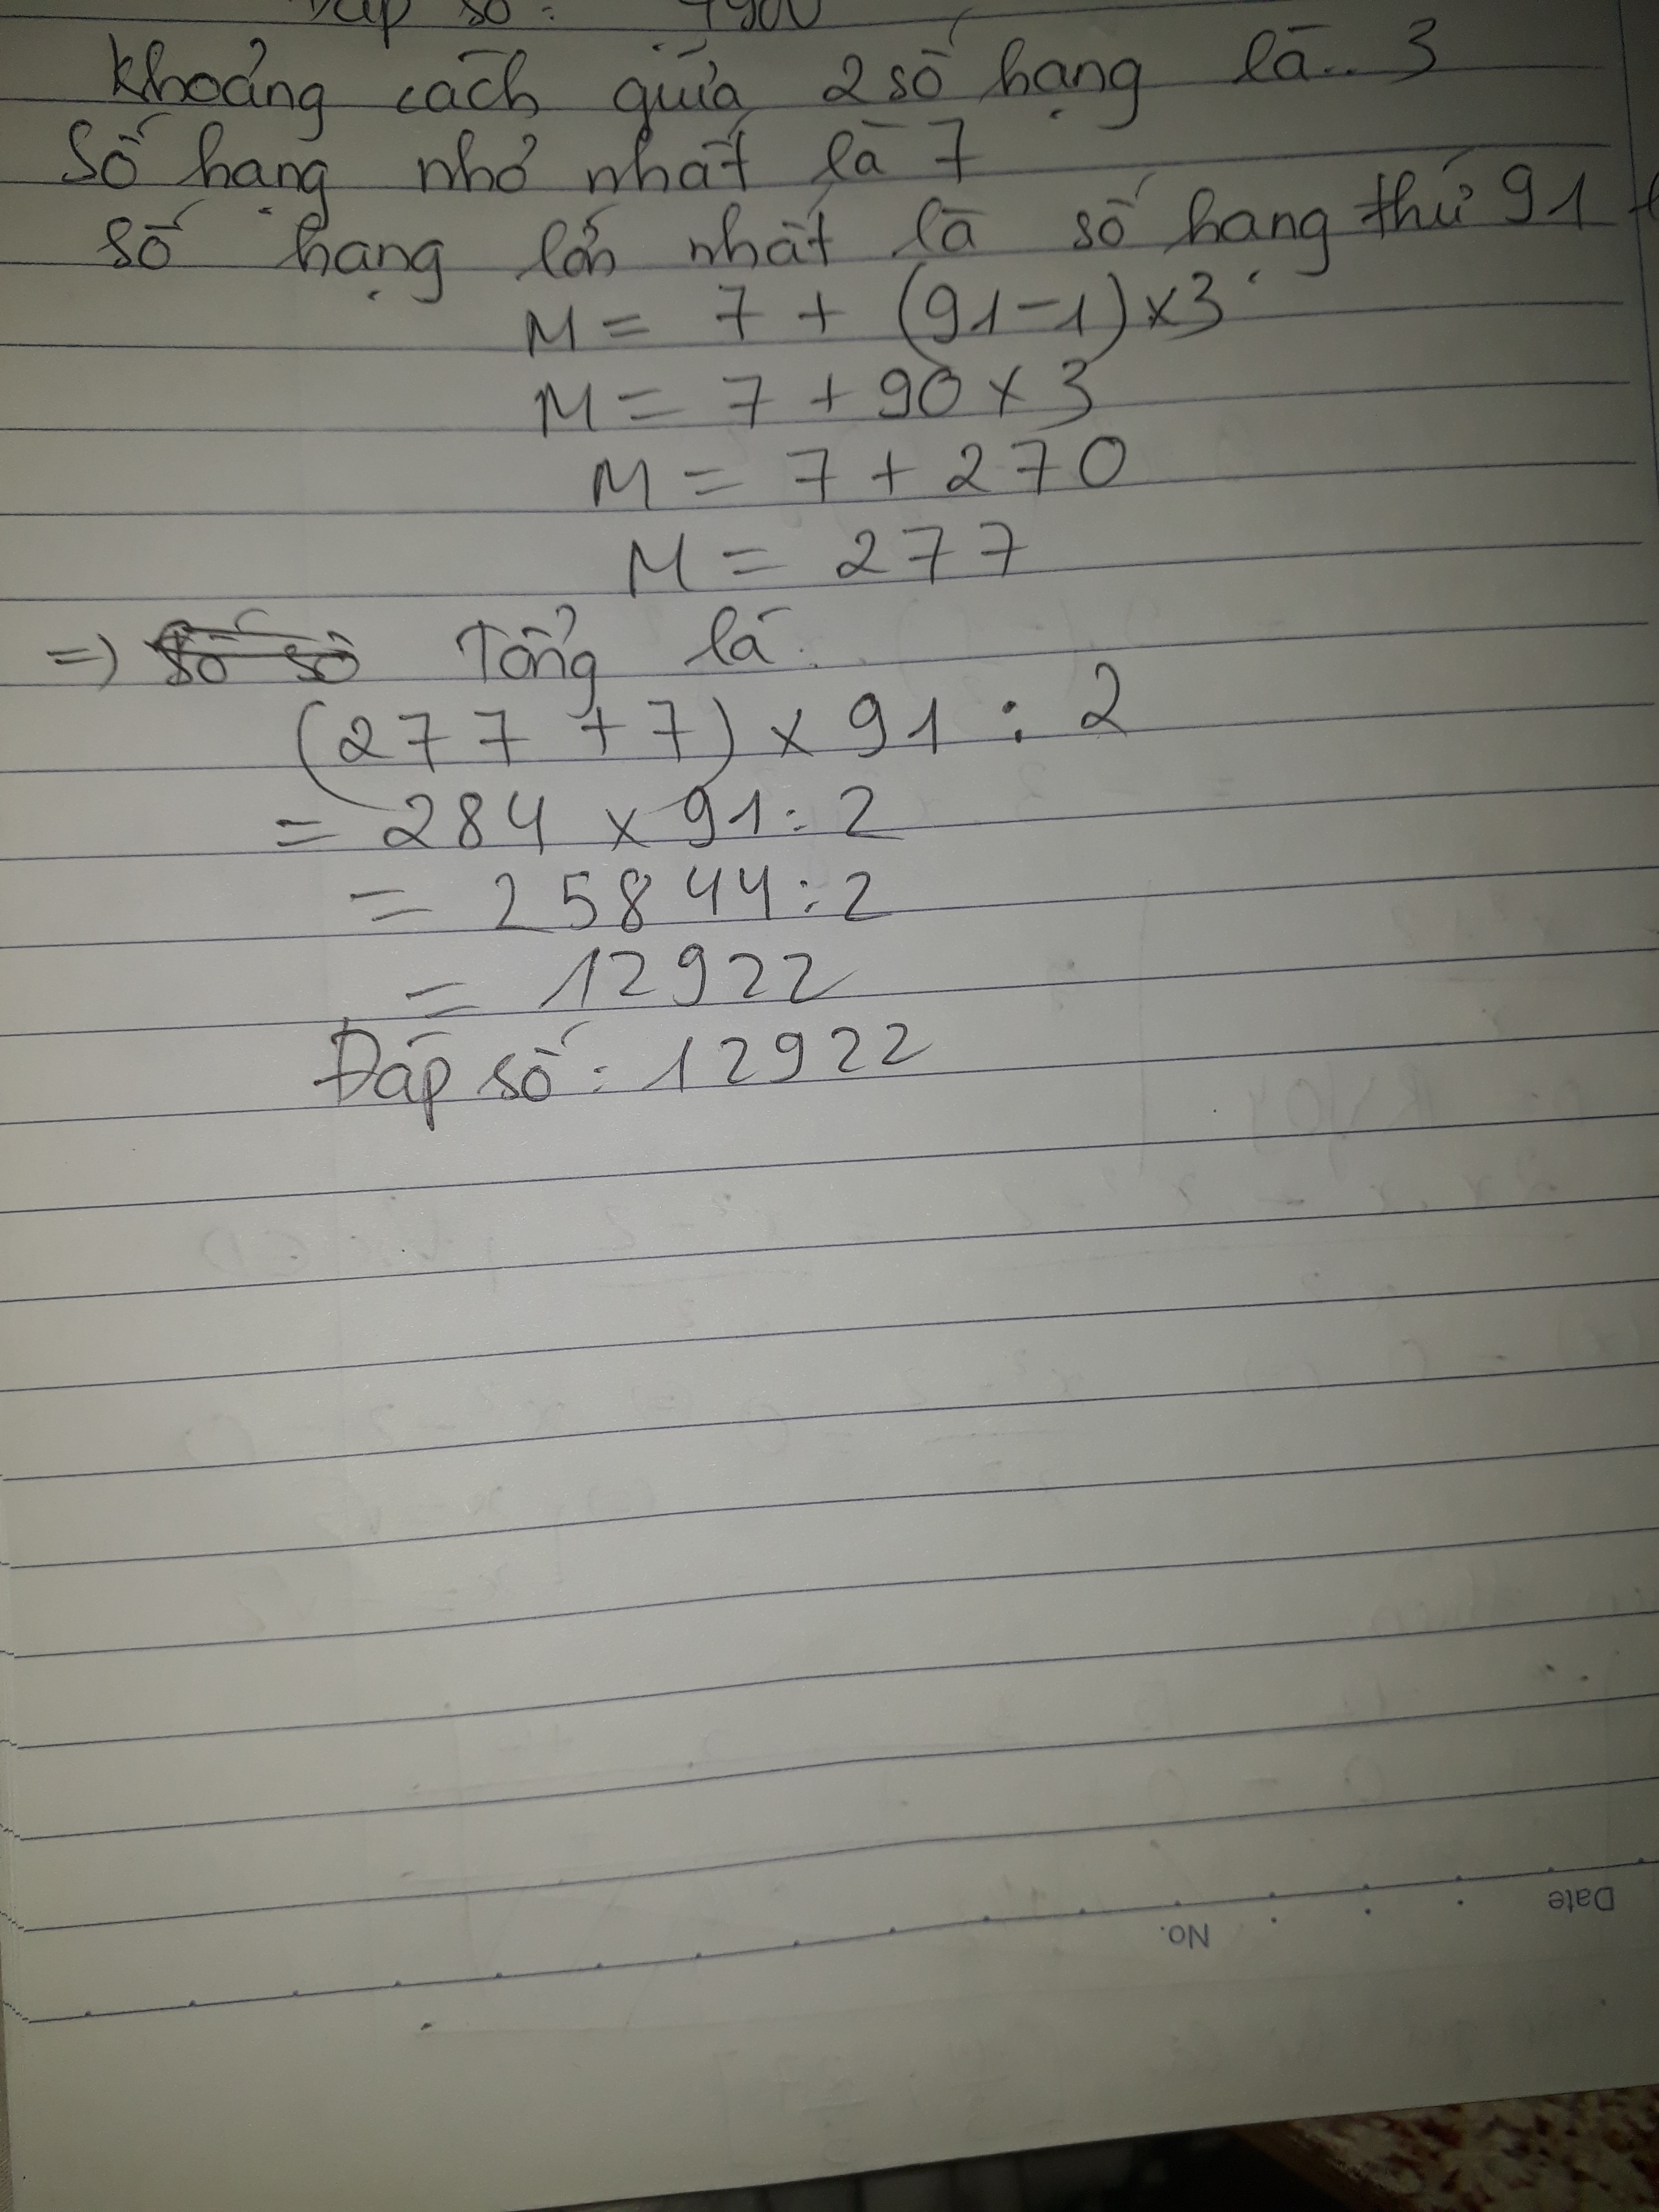 Đáp số: 4900
Khoảng cách giữa 2 số hạng là: 3
Số hạng nhỏ nhất là 7
Số hạng lớn nhất là số hạng thứ 91
M = 7 + (91-1) x 3
M = 7 + 90 x 3
M = 7 + 270
M = 277
=> Tổng là:
(277 + 7) x 91 : 2
= 284 x 91 : 2
= 25844 : 2
= 12922
Đáp số: 12922
No.
Date